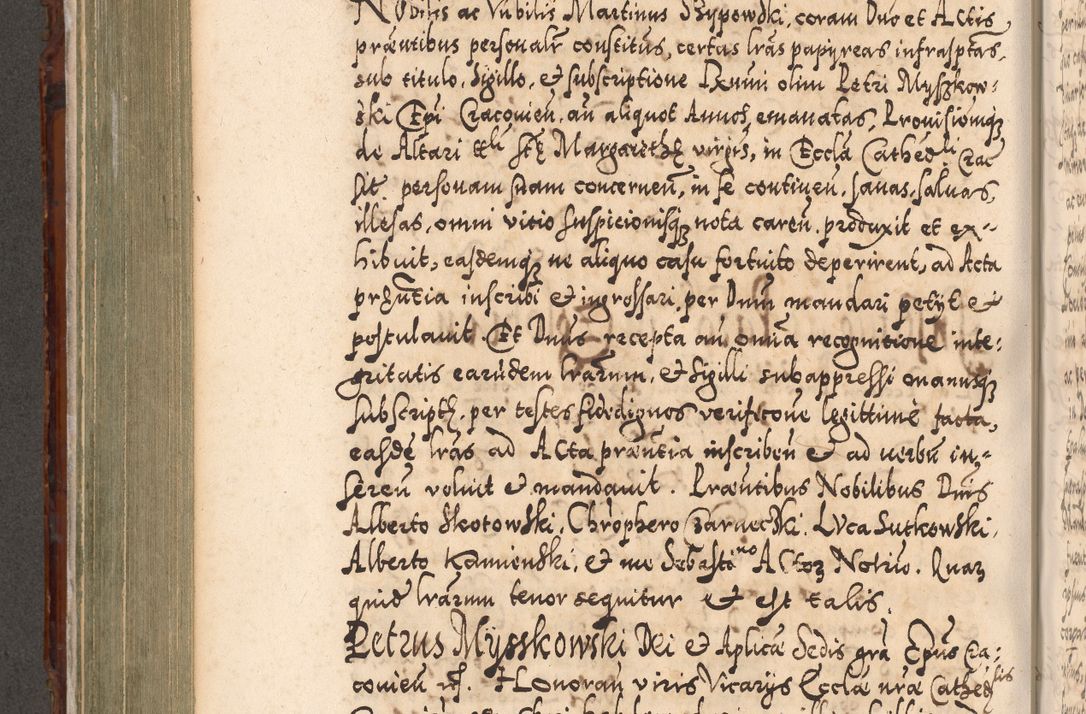 Nobilis ac Nubilis Martinus Szypowski, coram Dno et Actis
præntibus personalr constitus, certas lras papyreas infrasptas,
sub titulo, Sigillo, et subscriptione Rxnmi olim Petri Myszkow-
ski Epi Cracovien, an aliquot Annos, emanatas, Provisionisq
de Altari ttli Stę Margarethę virgis, in Eccla Cathedli Crac
sit personam suam concernen, in se continen, sanas, saluas,
illesas, omni vitio suspicionisq nota caren, produxit et ex-
hibuit, easdemq ne aliquo casu fortuito deperirent, ad Acta
przntia inscribi et ingrossari, per Dnm mandari petyt et
postulavit. Et Dnus recepta an omnia recognitione inte:
gritatis earundem lrarum, et Sigilli subappressi manusq
subscriptę, per testes fidedignos verificone legittime facta,
easde lras ad Acta præntia inscriben et ad verbu in-
seren voluit et mandavit. Præntibus Nobilibus Dnis
Alberto Skotowski, Chrophero Czarnecki, Luca Sutkowski,
Alberto Kamienski, et me Sebastiano Actor Notrio. Quar
quid lrarum tenor sequitur et est talis.
Petrus Mysskowski Dei et Aplicæ Sedis gra Epus Cra:
covien Honoran viris Vicarijs Ecclæ nræ Cathedlis